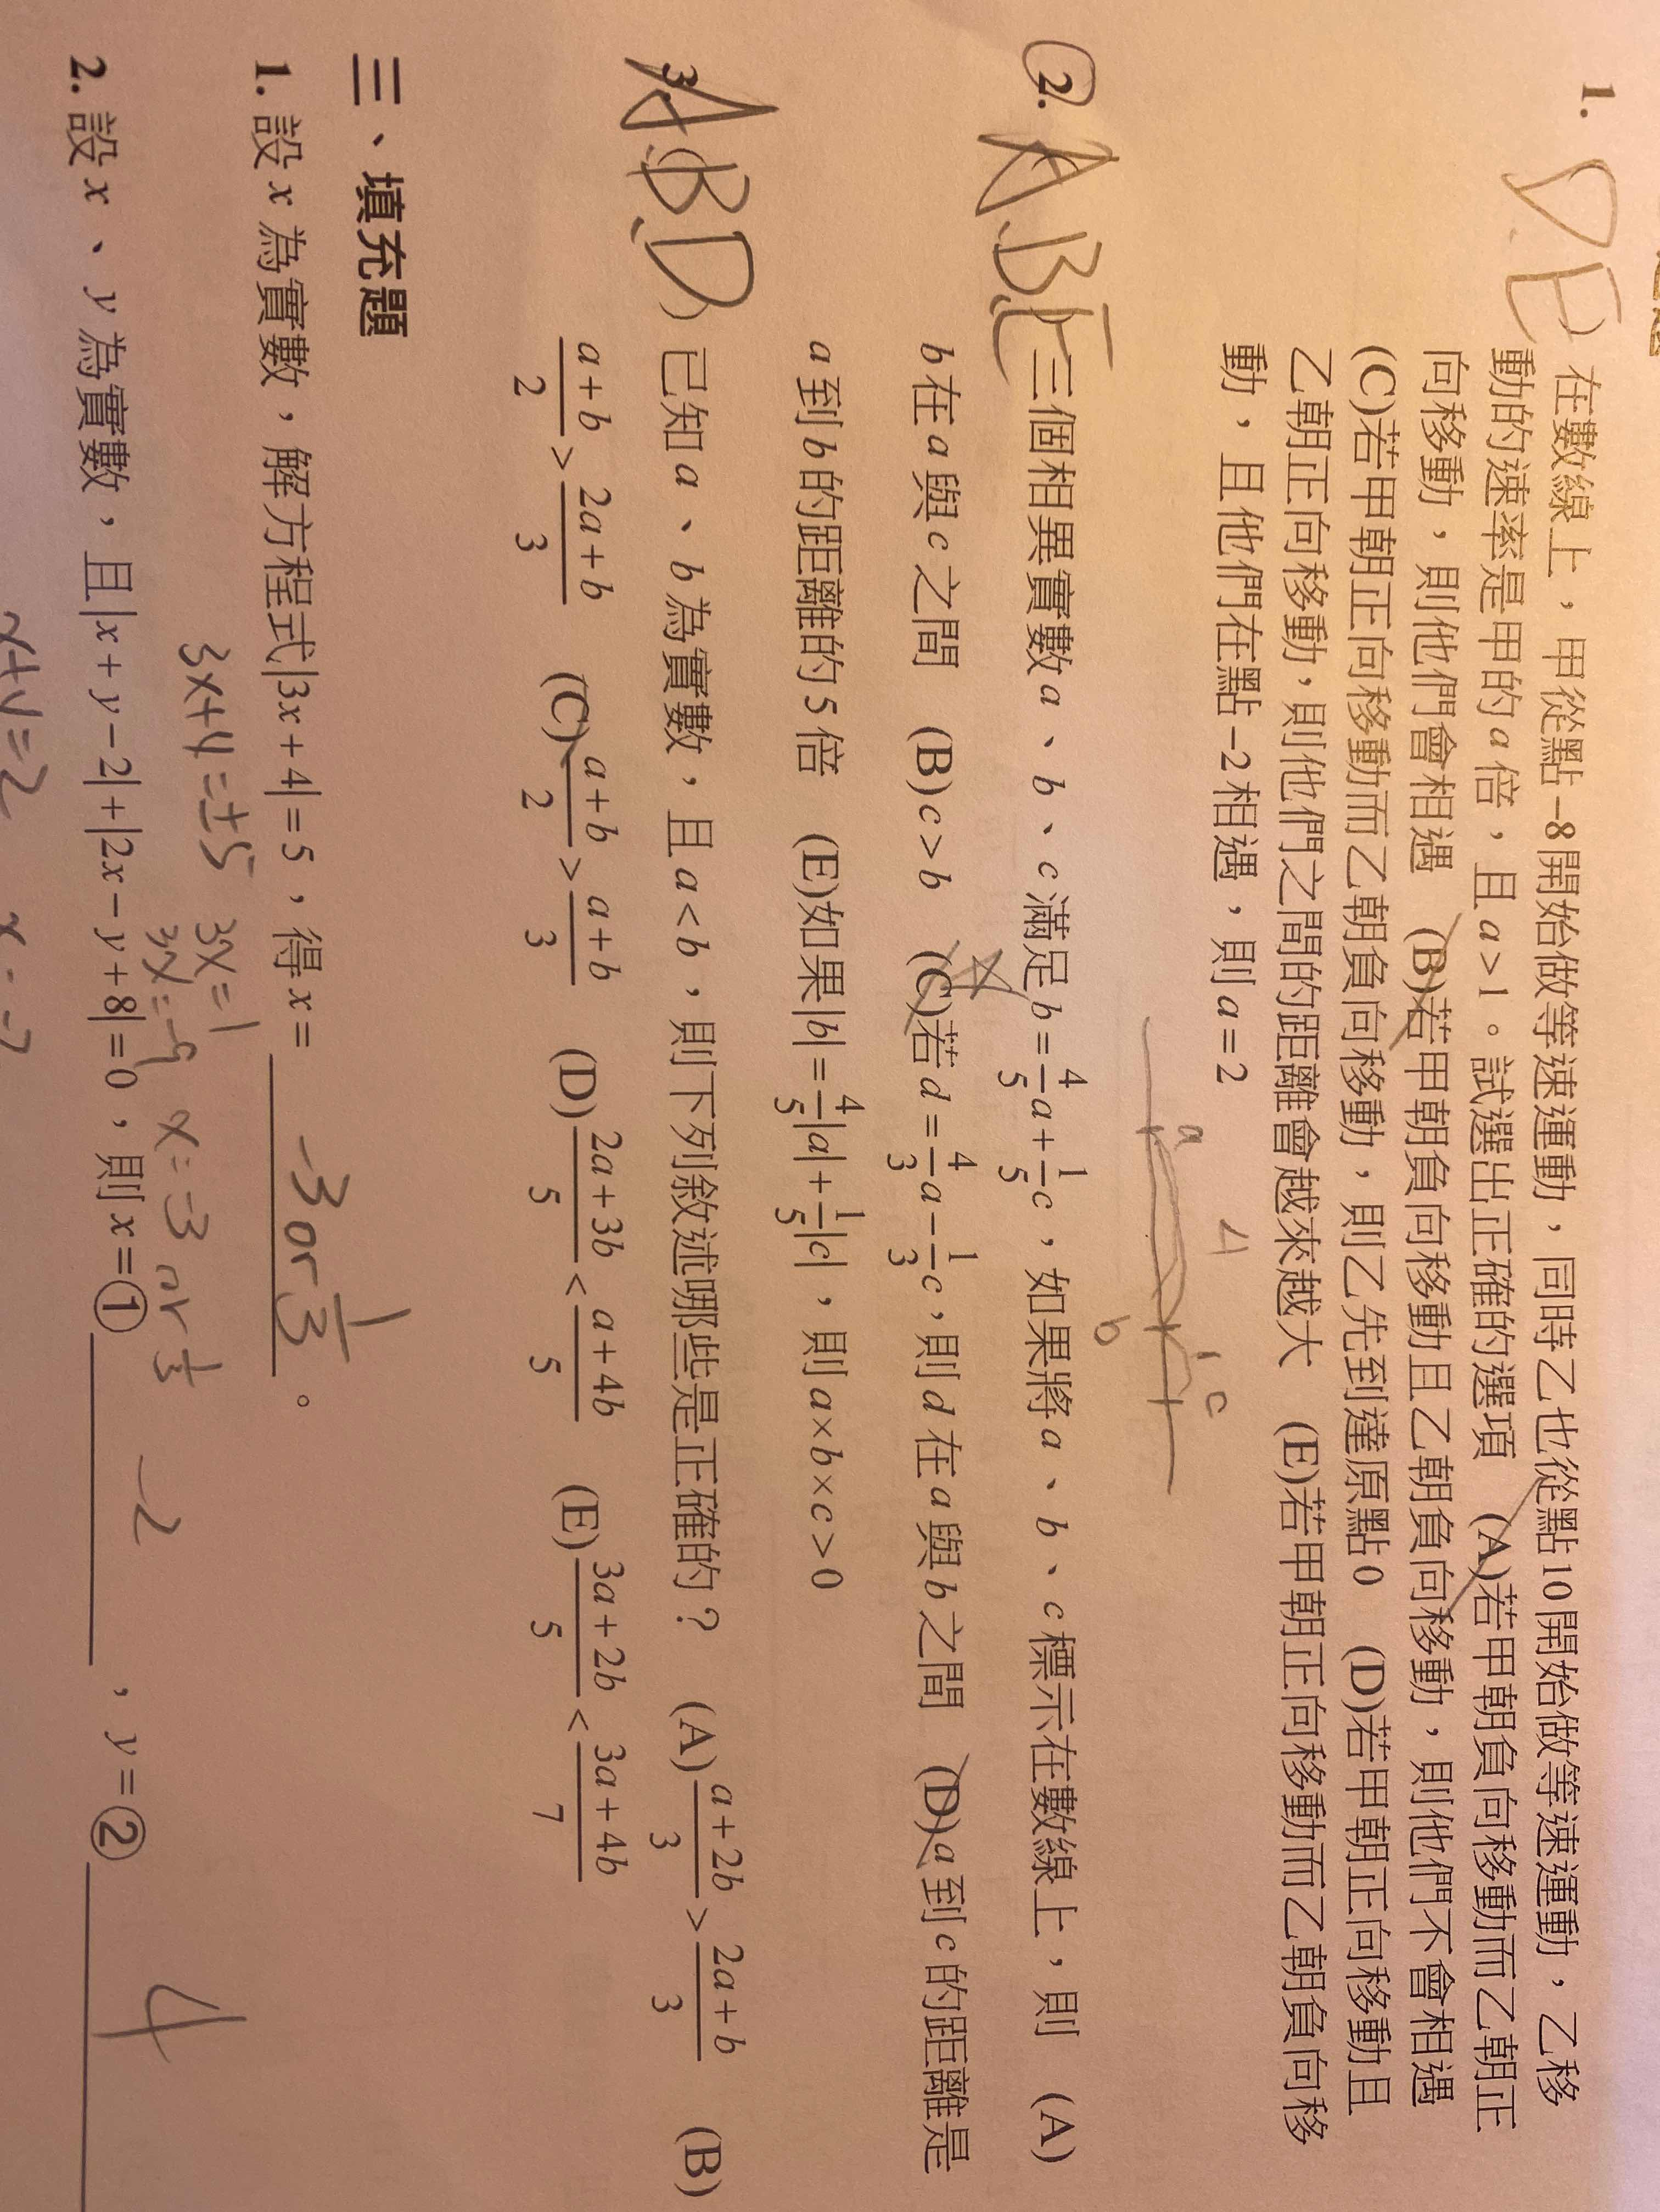 1. D.E) 在數線上，甲從點-8開始做等速運動，同時乙也從點10開始做等速運動，乙移
動的速率是甲的a倍，且a>1。試選出正確的選項 (A)若甲朝負向移動而乙朝正
向移動，則他們會相遇 (B)若甲朝負向移動且乙朝負向移動，則他們不會相遇
(C)若甲朝正向移動而乙朝負向移動，則乙先到達原點0 (D)若甲朝正向移動且
乙朝正向移動，則他們之間的距離會越來越大 (E)若甲朝正向移動而乙朝負向移
動，且他們在點-2相遇，則a=2
a 4 b 1 c
2. A.B.E 三個相異實數a、b、c滿足b=4/5a+1/5c，如果將a、b、c標示在數線上，則 (A)
b在a與c之間 (B)c>b (C)若d=4/3a-1/3c，則d在a與b之間 (D)a到c的距離是
a到b的距離的5倍 (E)如果|b|=4/5|a|+1/5|c|，則a×b×c>0
3. A.B.D) 已知a、b為實數，且a<b，則下列敘述哪些是正確的？ (A)(a+2b)/3>(2a+b)/3 (B)
(a+b)/2>(2a+b)/3 (C)(a+b)/2>(a+b)/3 (D)(2a+3b)/5<(a+4b)/5 (E)(3a+2b)/5<(3a+4b)/7
三、填充題
1. 設x為實數，解方程式|3x+4|=5，得x= -3 or 1/3 。
3x+4=±5 3x=1
3x=-9 x=-3 or 1/3
2. 設x、y為實數，且|x+y-2|+|2x-y+8|=0，則x=① -2 ，y=② 4
x+y=2